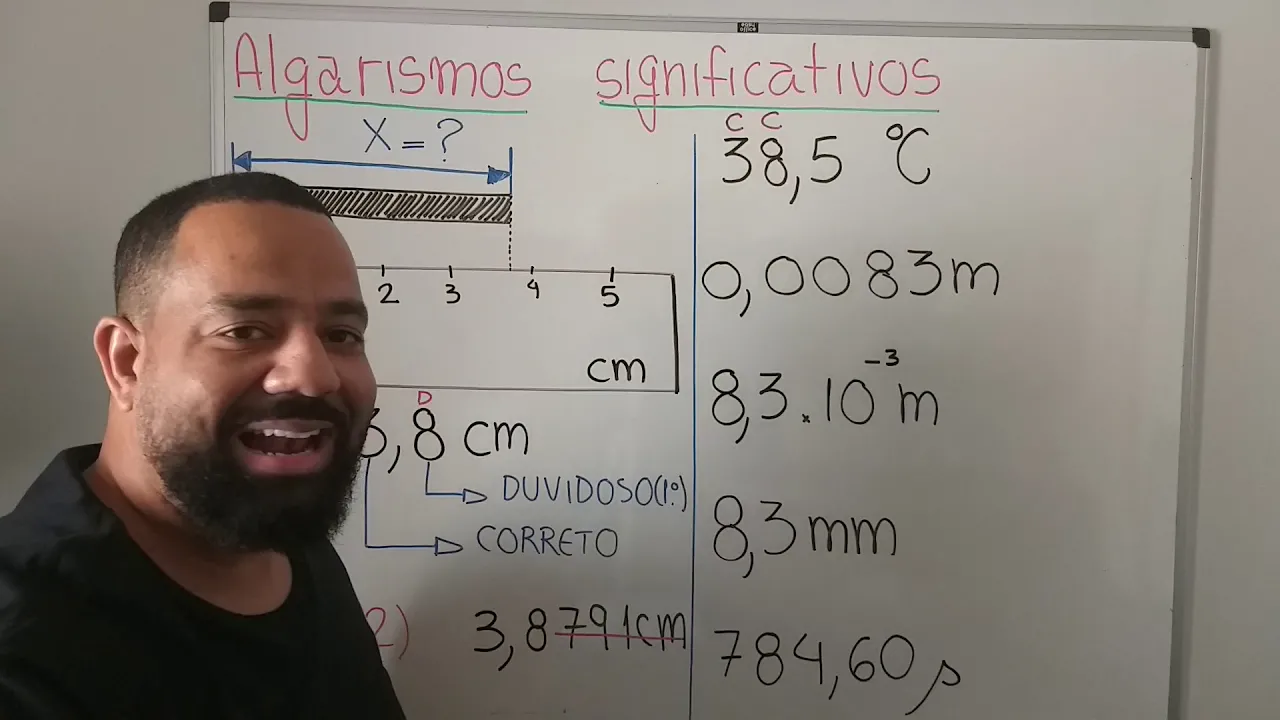 Algarismos significativos
X = ?
2 3 4 5
cm
D
3,8 cm
DUVIDOSO(1º)
CORRETO
2) 3,8791cm
C C
38,5 °C
0,0083m
8,3 x 10⁻³ m
8,3mm
784,60 s